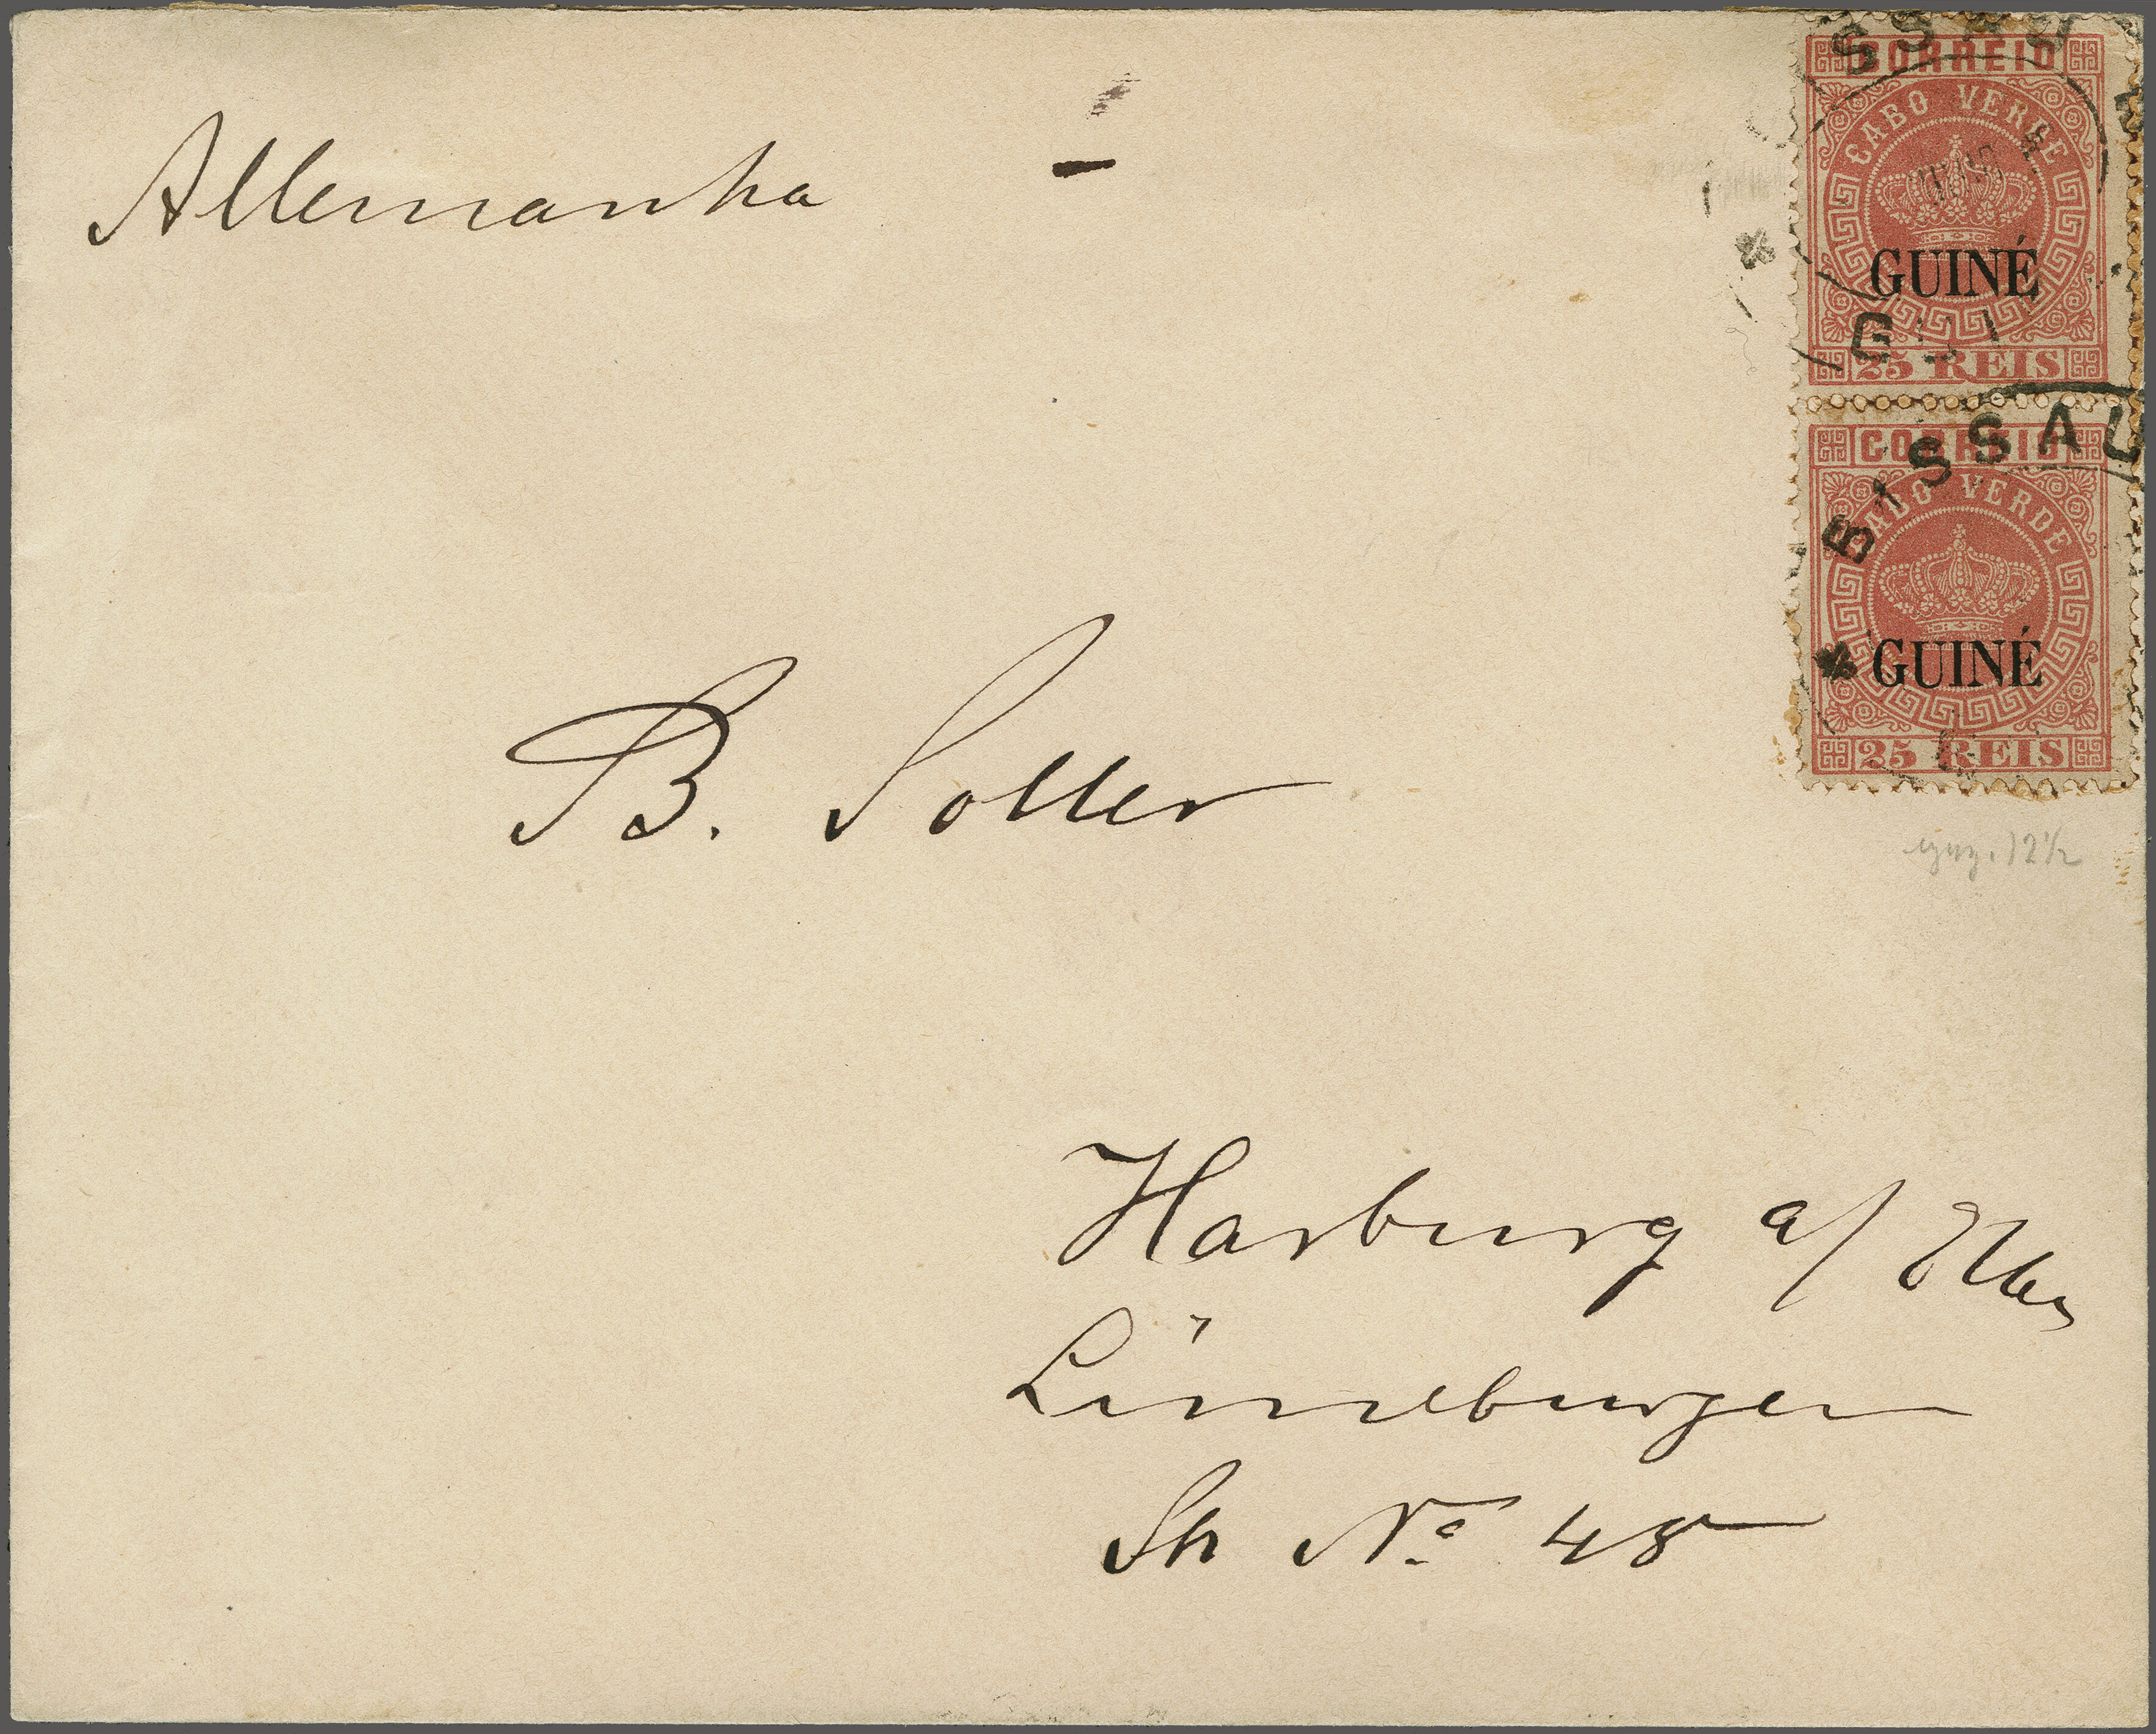 Allemanha
CORREIO
CABO VERDE
GUINÉ
25 REIS
SSAU
GUI
BISSAU
CORREIO
CABO VERDE
GUINÉ
25 REIS
B. Soller
12½
Harburg a/ Elbe
Lüneburger
Str No 48